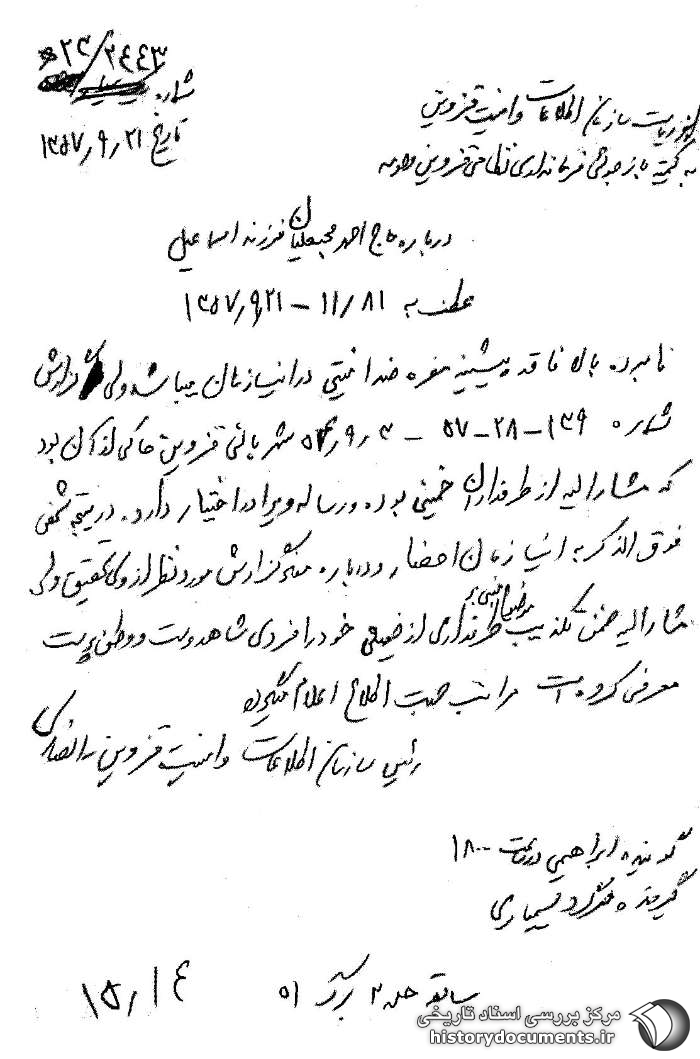 ۲۴۴۳/۲۳ه
شماره
تاریخ ۲۱ر۹ر۱۳۵۷
از ریاست سازمان اطلاعات و امنیت قزوین
به کمیته بازجوئی فرمانداری نظامی قزوین و حومه
درباره حاج احمد محبعلیان فرزند اسماعیل
عطف به ۱۱/۸۱ – ۲۱ر۹ر۱۳۵۷
نامبرده بالا فاقد پیشینه مضره ضد امنیتی در این سازمان میباشد ولی گزارش
شماره ۱۳۹–۲۸–۵۷ – ۳ر۹ر۵۷ شهربانی قزوین حاکی از آن بود
که مشارالیه از طرفداران خمینی بوده و رساله ویرا در اختیار دارد. در نتیجه شخص
فوق الذکر به این سازمان احضار و درباره مفاد گزارش مورد نظر از وی تحقیق ولی
مشارالیه ضمن تکذیب موضوع مبنی بر طرفداری از خمینی خود را فردی شاهدوست و وطن پرست
معرفی کرده است مراتب جهت اطلاع اعلام میگردد
رئیس سازمان اطلاعات و امنیت قزوین – انصاری
گوینده ابراهیمی ساعت ۱۸۰۰
گیرنده
سابقه جلد ۲ برگ ۵۱
۱۵ر۱۴
مرکز بررسی اسناد تاریخی
historydocuments.ir